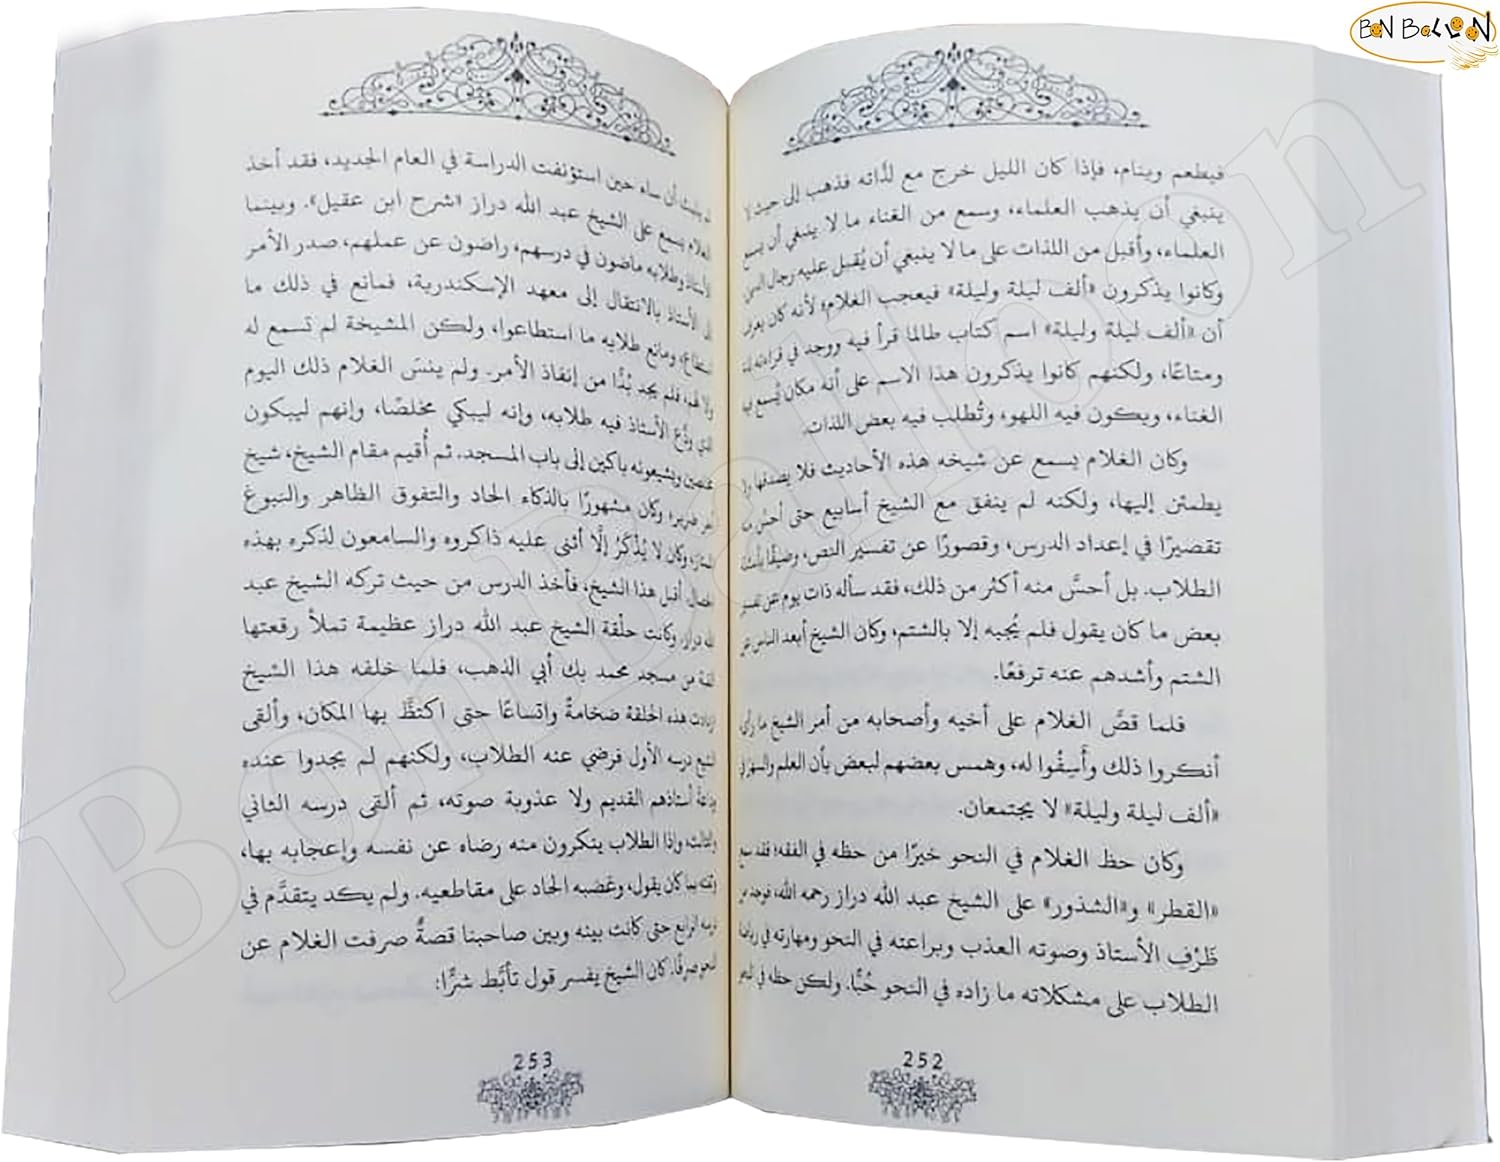 فيطعم وينام، فإذا كان الليل خرج مع لذَّاته فذهب إلى حيث لا
ينبغي أن يذهب العلماء، وسمع من الغناء ما لا ينبغي أن يسمع
العلماء، وأقبل من اللذات على ما لا ينبغي أن يُقبل عليه رجال
وكانوا يذكرون «ألف ليلة وليلة» فيعجب الغلام؛ لأنه كان يعرف
أن «ألف ليلة وليلة» اسم كتاب طالما قرأ فيه ووجد في قراءته لذة
ومتاعًا، ولكنهم كانوا يذكرون هذا الاسم على أنه مكان يُسمع فيه
الغناء، ويكون فيه اللهو، وتُطلب فيه بعض اللذات.
وكان الغلام يسمع عن شيخه هذه الأحاديث فلا يصدقها ولا
يطمئن إليها، ولكنه لم ينفق مع الشيخ أسابيع حتى أحسَّ منه
تقصيرًا في إعداد الدرس، وقصورًا عن تفسير النص، وضيقًا بأسئلة
الطلاب. بل أحسَّ منه أكثر من ذلك، فقد سأله ذات يوم عن تفسير
بعض ما كان يقول فلم يُجبه إلا بالشتم، وكان الشيخ أبعد الناس عن
الشتم وأشدهم عنه ترفعًا.
فلما قصَّ الغلام على أخيه وأصحابه من أمر الشيخ ما رأى
أنكروا ذلك وأَسِفُوا له، وهمس بعضهم لبعض بأن العلم والسهر في
«ألف ليلة وليلة» لا يجتمعان.
وكان حظ الغلام في النحو خيرًا من حظه في الفقه؛ فقد سمع
«القطر» و«الشذور» على الشيخ عبد الله دراز رحمه الله، فوجد من
ظَرْفِ الأستاذ وصوته العذب وبراعته في النحو ومهارته في رياضة
الطلاب على مشكلاته ما زاده في النحو حُبًّا. ولكن حظه في النحو
252
لم يلبث أن ساء حين استؤنفت الدراسة في العام الجديد، فقد أخذ
الغلام يسمع على الشيخ عبد الله دراز «شرح ابن عقيل». وبينما
الأستاذ وطلابه ماضون في درسهم، راضون عن عملهم، صدر الأمر
إلى الأستاذ بالانتقال إلى معهد الإسكندرية، فمانع في ذلك ما
استطاع، ومانع طلابه ما استطاعوا، ولكن المشيخة لم تسمع له
ولا لهم، فلم يجد بُدًّا من إنفاذ الأمر. ولم ينسَ الغلام ذلك اليوم
الذي ودَّع الأستاذ فيه طلابه، وإنه ليبكي مخلصًا، وإنهم ليبكون
مخلصين ويشيعونه باكين إلى باب المسجد. ثم أُقيم مقام الشيخ، شيخ
آخر ضرير، وكان مشهورًا بالذكاء الحاد والتفوق الظاهر والنبوغ
الممتاز، وكان لا يُذْكَرُ إلَّا أثنى عليه ذاكروه والسامعون لذكره بهذه
الخصال. أقبل هذا الشيخ، فأخذ الدرس من حيث تركه الشيخ عبد
الله دراز. وكانت حلْقة الشيخ عبد الله دراز عظيمة تملأ رقعتها
القبة من مسجد محمد بك أبي الذهب، فلما خلفه هذا الشيخ
ازدادت هذه الحلقة ضخامةً واتساعًا حتى اكتظَّ بها المكان، وألقى
الشيخ درسه الأول فرضي عنه الطلاب، ولكنهم لم يجدوا عنده
وداعة أستاذهم القديم ولا عذوبة صوته، ثم ألقى درسه الثاني
والثالث، وإذا الطلاب ينكرون منه رضاه عن نفسه وإعجابه بها،
وثقته بما كان يقول، وغضبه الحاد على مقاطعيه. ولم يكد يتقدَّم في
درسه الرابع حتى كانت بينه وبين صاحبنا قصةٌ صرفت الغلام عن
النحو صرفًا. كان الشيخ يفسر قول تأبَّط شرًّا:
253
BON BALLOON
BonBalloon